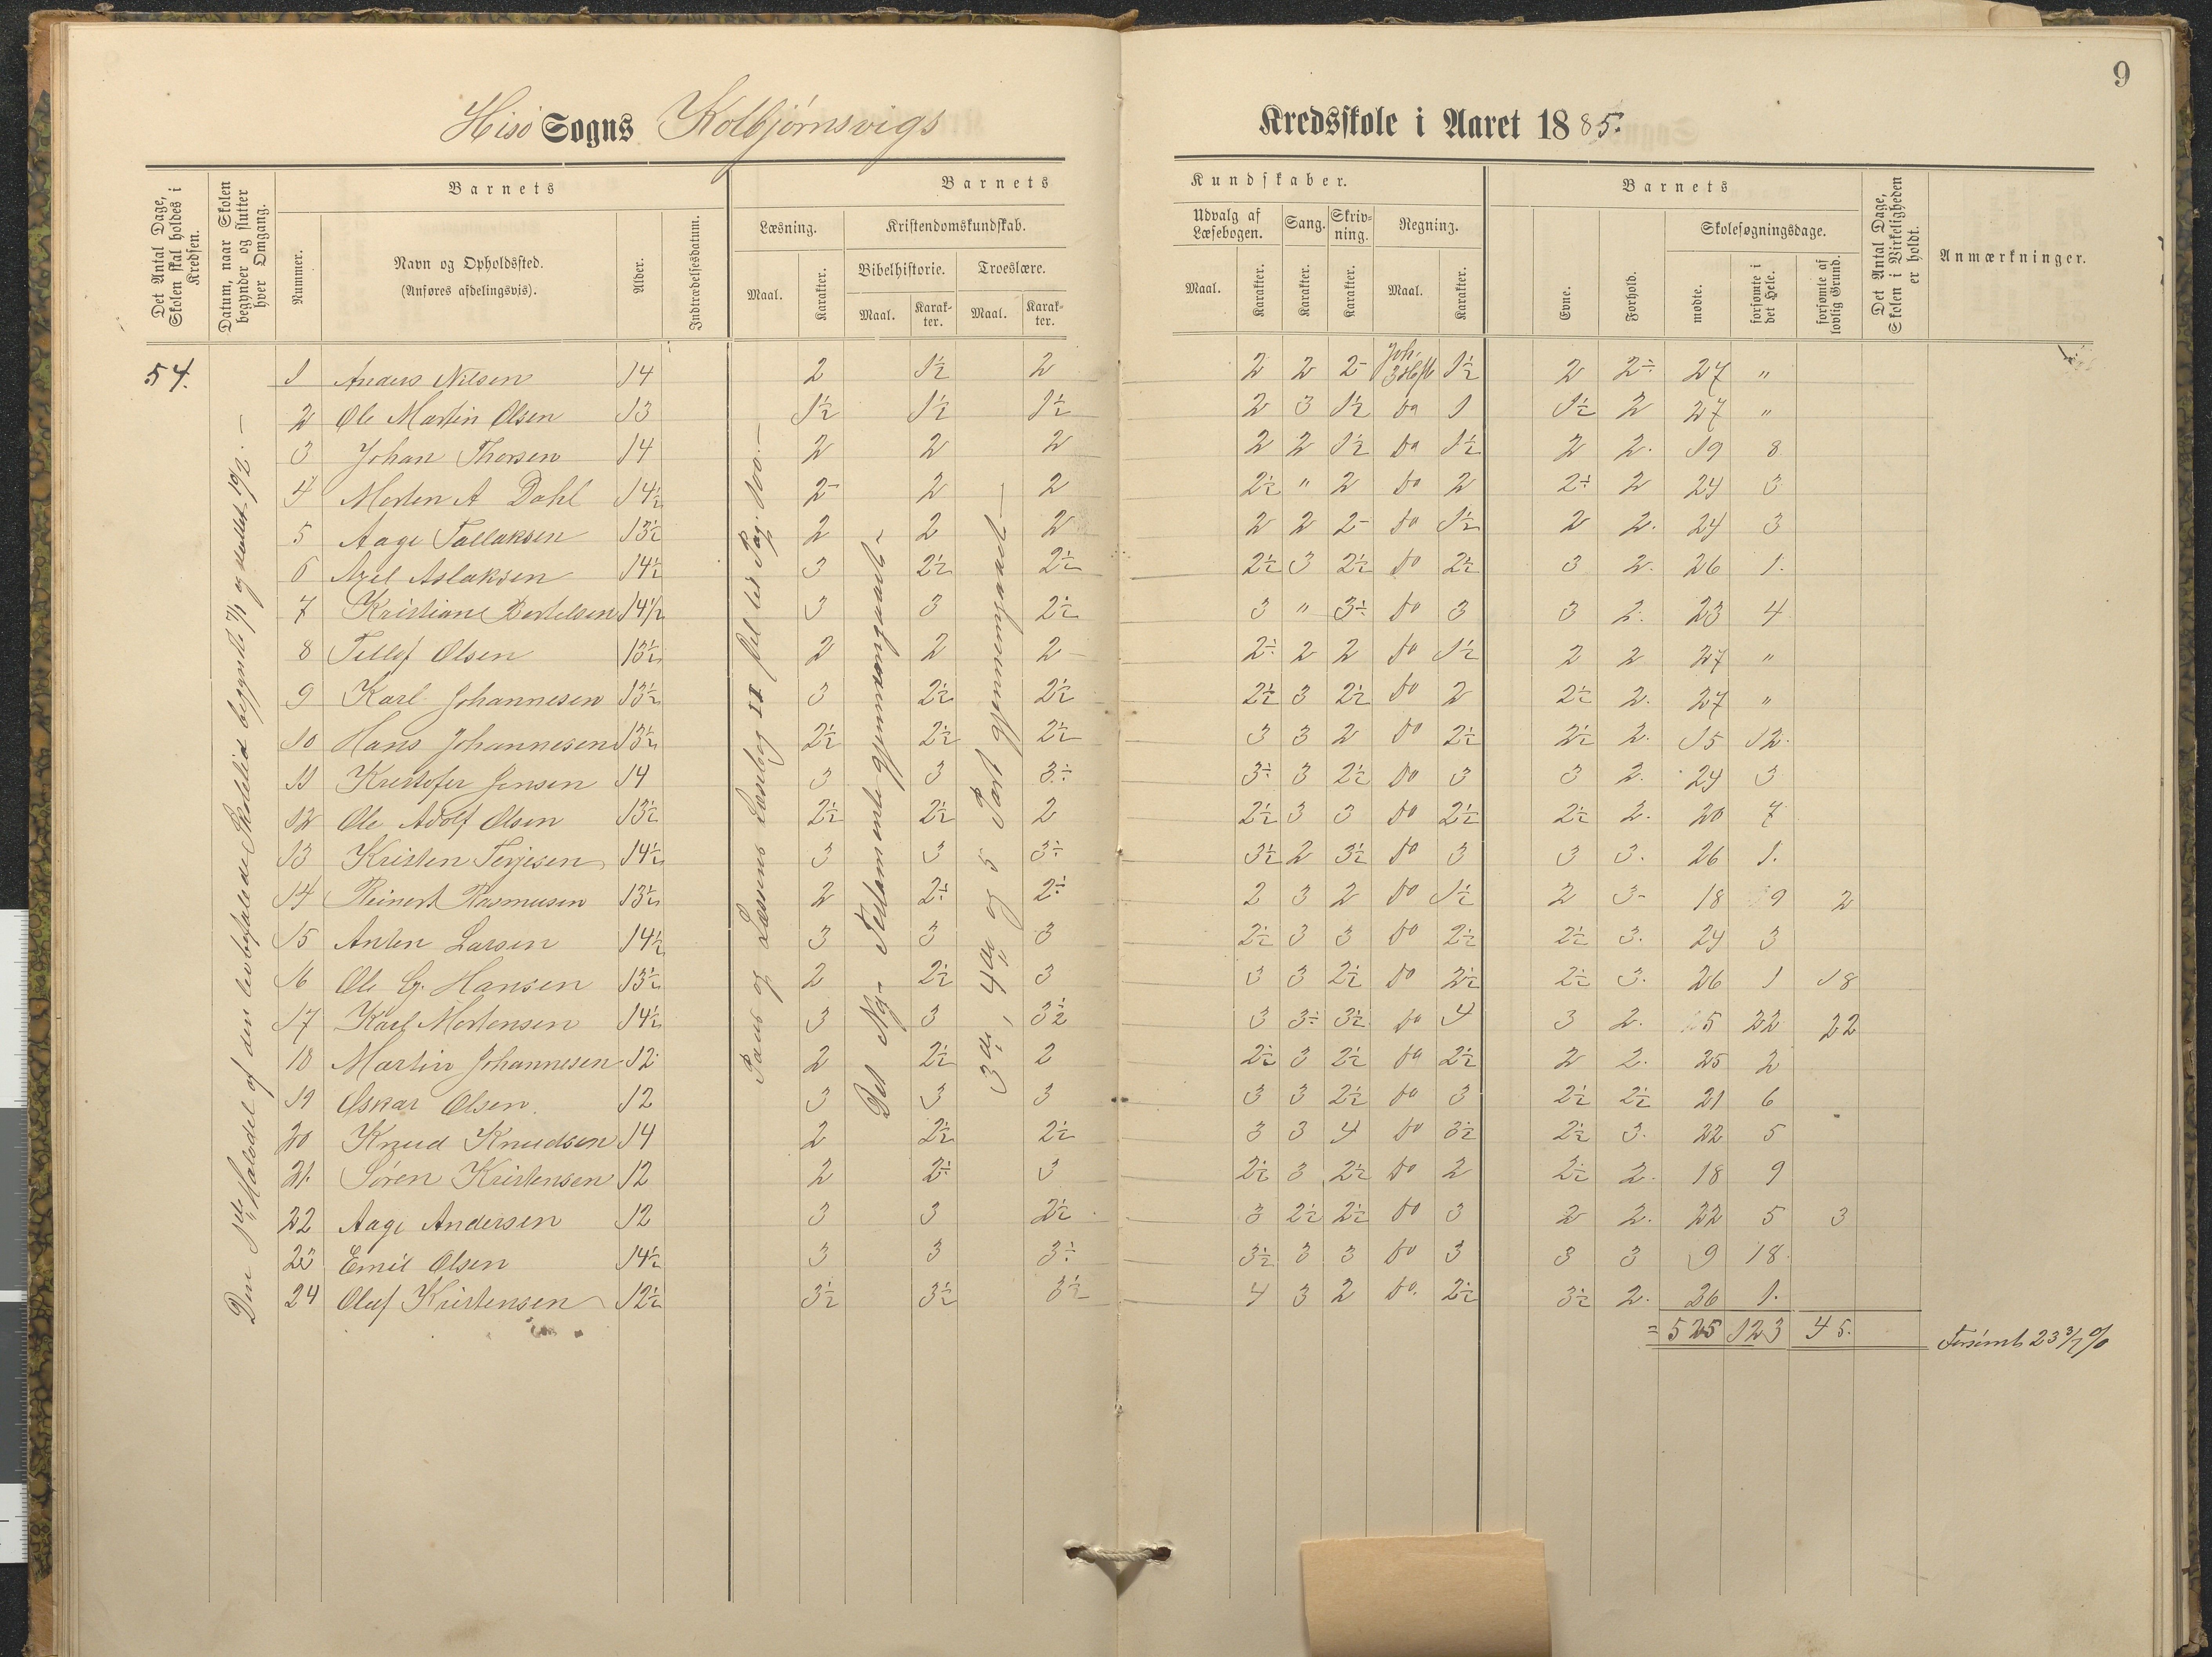 9
Hisö Sogns Kolbjörnsvigs Kredsskole i Aaret 1885.
Det Antal Dage, Skolen skal holdes i Kredsen.
Datum, naar Skolen begynder og slutter hver Omgang.
Barnets
Nummer.
Navn og Opholdssted.
(Anføres afdelingsvis).
Alder.
Indtrædelsesdatum.
Barnets Kundskaber.
Læsning.
Maal.
Karakter.
Kristendomskundskab.
Bibelhistorie.
Maal.
Karak-ter.
Troeslære.
Maal.
Karak-ter.
Udvalg af Læsebogen.
Maal.
Karakter.
Sang.
Karakter.
Skriv-ning.
Karakter.
Regning.
Maal.
Karakter.
Barnets
Evne.
Forhold.
Skolesøgningsdage.
mødte.
forsømte i det Hele.
forsømte af lovlig Grund.
Det Antal Dage, Skolen i Virkeligheden er holdt.
Anmærkninger.
54.
Den 1ste Halvdel af den lovbefalede Skoletid begyndte 7/1 og sluttet 19/2. —
Paus og Lassens Læsebog II Del til Pag. 100. —
Det Nye Testamente gjennemgaaet —
3die, 4de og 5 Part gjennemgaaet —
1 Anders Nilsen 14 2 1½ 2 2 2 2- Joh. 3 Hefte 1½ 2 2÷ 27 "
2 Ole Martin Olsen 13 1½ 1½ 1½ 2 3 1½ do 1 1½ 2 27 "
3 Johan Thorsen 14 2 2 2 2 2 1½ do 1½ 2 2. 19 8
4 Morten A Dahl 14½ 2- 2 2 2½ " 2 do 2 2÷ 2 24 3
5 Aage Tallaksen 13½ 2 2 2 2 2 2- do 1½ 2 2. 24 3
6 Axel Aslaksen 14½ 3 2½ 2½ 2½ 3 2½ do 2½ 3 2. 26 1.
7 Kristiane Bertelsen 14½ 3 3 2½ 3 " 3÷ do 3 3 2. 23 4
8 Tellef Olsen 13½ 2 2 2 2÷ 2 2 do 1½ 2 2 27 "
9 Karl Johannesen 13½ 3 2½ 2½ 2½ 3 2½ do 2 2½ 2. 27 "
10 Hans Johannesen 13½ 2½ 2½ 2½ 3 3 2 do 2½ 2½ 2. 15 12.
11 Kristofer Jensen 14 3 3 3÷ 3÷ 3 2½ do 3 3 2. 24 3
12 Ole Adolf Olsen 13½ 2½ 2½ 2 2½ 3 3 do 2½ 2½ 2. 20 7
13 Kristen Terjesen 14½ 3 3 3÷ 3½ 2 3½ do 3 3 3. 26 1.
14 Reinert Rasmusen 13½ 2 2÷ 2÷ 2 3 2 do 1½ 2 3- 18 9 2
15 Anten Larsen 14½ 3 3 3 2½ 3 3 do 2½ 2½ 3. 24 3
16 Ole G. Hansen 13½ 2 2½ 3 3 3 2½ do 2½ 2½ 3. 26 1 18
17 Karl Mortensen 14½ 3 3 3½ 3 3÷ 3½ do 4 3 2. 5 22 22
18 Martin Johannesen 12 2 2½ 2 2½ 3 2½ do 2½ 2 2. 25 2
19 Oskar Olsen 12 3 3 3 3 3 2½ do 3 2½ 2½ 21 6
20 Knud Knudsen 14 2 2½ 2½ 3 3 4 do 3½ 2½ 3. 22 5
21. Sören Kristensen 12 2 2÷ 3 2½ 3 2½ do 2 2½ 2. 18 9
22 Aage Andersen 12 3 3 2½ 3 2½ 2½ do 3 2 2. 22 5 3
23 Emil Olsen 14½ 3 3 3÷ 3½ 3 3 do 3 3 3 9 18.
24 Oluf Kristensen 12½ 3½ 3½ 3½ 4 3 2 do. 2½ 3½ 2. 26 1.
= 525 123 45. Forsömt 23 3/7 %